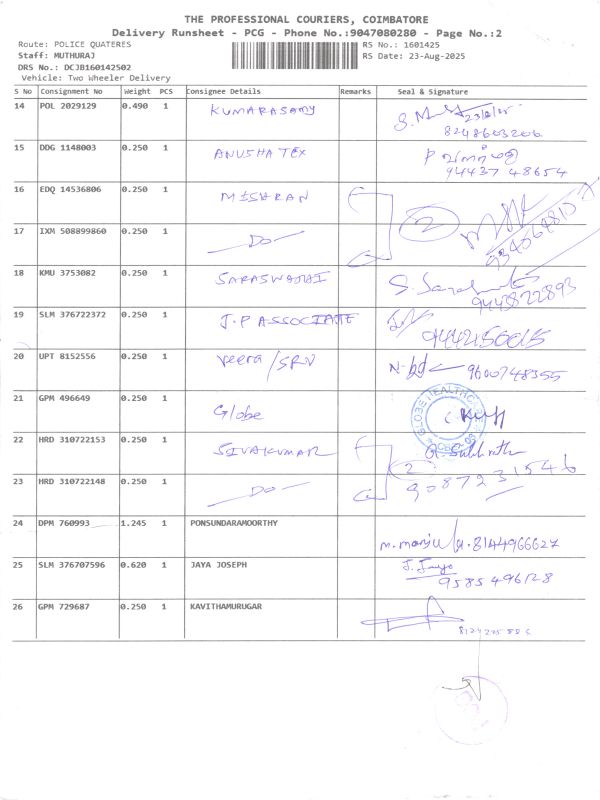 THE PROFESSIONAL COURIERS, COIMBATORE
Delivery Runsheet - PCG - Phone No.:9047080280 - Page No.:2
Route: POLICE QUATERES RS No.: 1601425
Staff: MUTHURAJ RS Date: 23-Aug-2025
DRS No.: DCJB160142502
Vehicle: Two Wheeler Delivery
S No Consignment No Weight PCS Consignee Details Remarks Seal & Signature
14 POL 2029129 0.490 1 KUMARASAMY
8248603206
15 DDG 1148003 0.250 1 ANUSHA TEX
94437 48654
16 EDQ 14536806 0.250 1 MISHRAN 2
17 IXM 508899860 0.250 1 Do
18 KMU 3753082 0.250 1 SARASWATHI
9443822893
19 SLM 376722372 0.250 1 J.P ASSOCIATE
20 UPT 8152556 0.250 1 Veera/SRV 9600748355
21 GPM 496649 0.250 1 Globe
GLOBE HEALTHCARE
22 HRD 310722153 0.250 1 SIVAKUMAR
2
23 HRD 310722148 0.250 1 Do 9087231546
24 DPM 760993 1.245 1 PONSUNDARAMOORTHY
M. Manju 8144966627
25 SLM 376707596 0.620 1 JAYA JOSEPH
9585496128
26 GPM 729687 0.250 1 KAVITHAMURUGAR